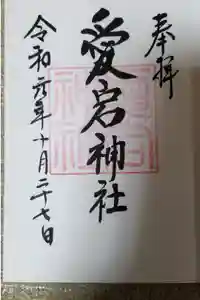 奉拝
愛宕神社
令和元年十月二十七日